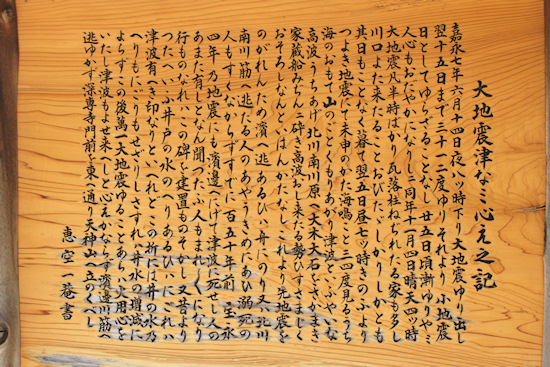 大地震津なミ心え之記
嘉永七年六月十四日夜八ッ時下り大地震ゆり出し
翌十五日まで三十一二度ゆりそれより小地震
日としてゆらざることなし廿五日頃漸ゆりやミ
人心もおだやかになりしニ同年十一月四日晴天四ッ時
大地震凡半時ばかり瓦落柱ねぢれたる家も多し
川口よた来たることおびたゞしかりしかとも
其日もことなく暮て翌五日昼七ッ時きのふより
つよき地震にて未申のかた海鳴こと三四度見るうち
海のおもて山のことくもりあがり津波といふやいな
高波うちあげ北川南川原へ大木大石をさかまき
家蔵船みぢんニ砕き高波おし来たる勢ひすさまじく
おそろしなんといはんかたなしこれより先地震を
のがれんため濱へ逃あるひハ舟にのり又ハ北川
南川筋へ逃たる人のあやうきめにあひ溺死の
人もすくなからずすでに百五十年前宝永
四年乃地震にも濱邊へにげて津波に死せし人の
あまた有しとなん聞つたふ人もまれ〱になり
行ものなれハこの碑を建置ものそかし又昔より
つたへいふ井戸の水のへりあるひハにごれハ
津波有へき印なりといへれどこの折には井の水乃
へりもにごりもせざりしさすれハ井水の増減に
よらずこの後萬一大地震ゆることあらハ火用心を
いたし津波もよせ来へしと心えかならず濱邊川筋へ
逃ゆかず深専寺門前を東へ通り天神山へ立のくべし
恵空一菴書